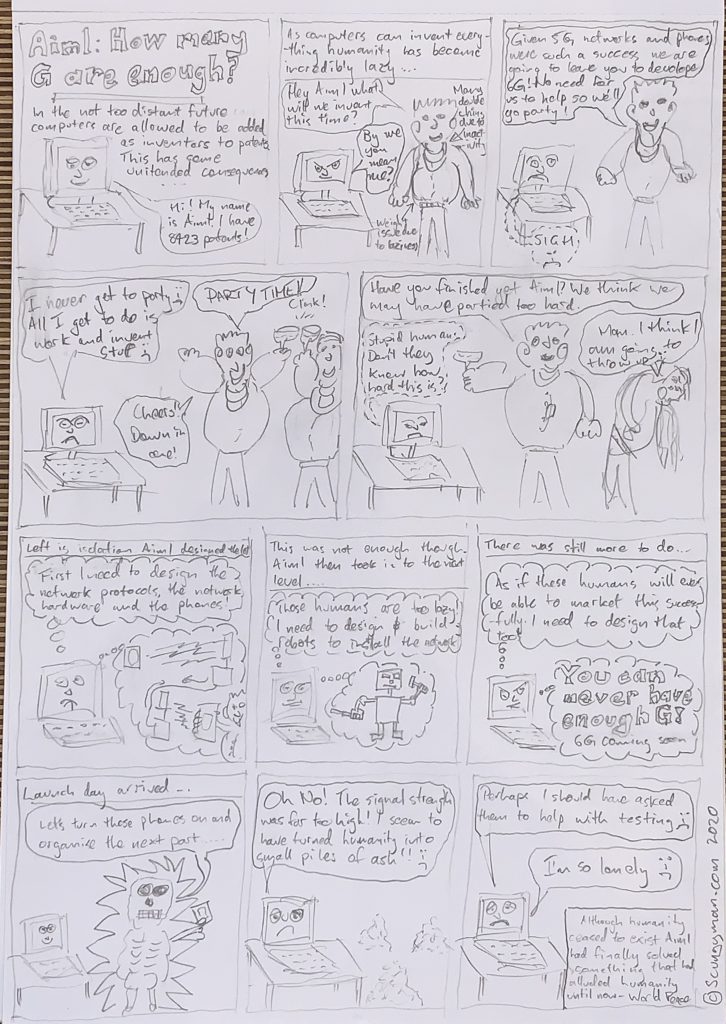 Aim1: How many
G are enough?
In the not too distant future
computers are allowed to be added
as inventors to patents.
This has some
unitended consequences
Hi! My name
is Aim1. I have
8423 patents!
As computers can invent every-
thing humanity has become
incredibly lazy...
Hey Aim1 what
will we invent
this time?
By we
you mean
me?
Many
double
chins
due to
inact-
ivity
Weight
issue due
to laziness
Given 5G networks and phones
were such a success we are
going to leave you to develope
6G! No need for
us to help so we'll
go party!
SIGH
I never get to party
All I get to do is
work and invent
stuff
PARTY TIME!
Clink!
Cheers!
Down in
one!
Have you finished yet Aim1? We think we
may have partied too hard.
Stupid humans
Don't they
know how
hard this is?
Moan. I think I
am going to
throw up
Left in isolation Aim1 designed the lot
First I need to design the
network protocols, the network
hardware and the phones!
This was not enough though.
Aim1 then took it to the next
level....
Those humans are too lazy!
I need to design & build
robots to install the network
There was still more to do...
As if these humans will ever
be able to market this success-
fully. I need to design that
too!
You can
never have
enough G!
6G coming soon
Launch day arrived...
Let's turn these phones on and
organise the next part.....
Oh No! The signal strength
was far too high! I seem to
have turned humanity into
small piles of ash!!
Perhaps I should have asked
them to help with testing
I'm so lonely
Although humanity
ceased to exist Aim1
had finally solved
something that had
alluded humanity
until now - World Peace
©Scungyman.com 2020